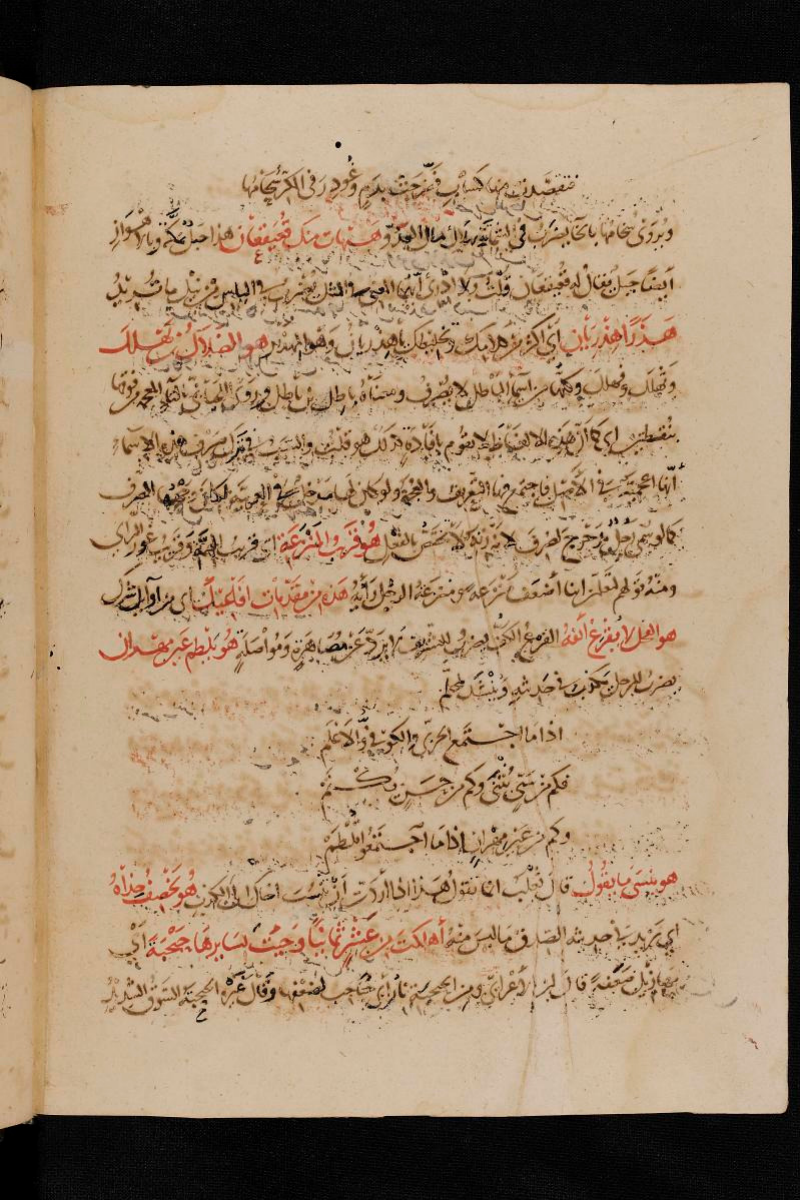 فتقصدت منها كساب فضرجت بدم وغودر في المكر سخامها
ويروى سخامها بالحاء يضرب في
هيهات منك قعيقعان هذا جبل بمكة وبالاهواز
ايضا جبل يقال له قعيقعان قلت ولا ادري ايهما المعني والمثل يضرب في الياس من نيل ما تريد
هذرا هذريان اي اكثر من كلامك وتخليطك يا هذريان وهو المهذار هو الضلال بن بهلل
وثهلل وفهلل وكلها من اسماء الباطل لا يصرف ومعناه باطل بن باطل وروى اللحياني بالتاء المعجمة من فوقها
بنقطتين اي كما ان هذه الالفاظ لا تقوم بافادة كذلك هو قلت والسبب في ترك صرف هذه الاسماء
انها اعجمية في الاصل فاجتمع فيها التعريف والعجمة ولو كان لها مدخل في العربية لكان وجهها الصرف
كما لو سمي رجل بدحرج لصرف لانه زنة لا تختص بالفعل هو قريب المنزعة اي قريب الهمة وقريب غور الراي
ومنه قولهم لتعلمن اينا اضعف منزعة ومنزعة الرجل رايه هذه من مقدمات افاعيك اي من اوائل شرك
هو الفحل لا يقرع انفه القرع الكف يضرب للشريف لا يرد عن مصاهرة ومواصلة هو يلطم عين مهران
يضرب للرجل يكذب في حديثه وينشد
اذا ما اجتمع الجربي والكوفي والاعلم
فكم من سيئ يثنى وكم من حسن يكتم
وكم من عين مهران اذا ما اجتمعوا تلطم
هو ينسى ما يقول قال ثعلب انما تقول هذا اذا اردت ان تنسب اخاك الى الكذب هو يخصف حذاه
اي يزيد في حديثه الصدق ما ليس منه اهلكت من عشر ثمانيا وجئت بسايرها حبحبة اي
مهازيل ضعيفة قال ابن الاعرابي ومن الحبحبة نار ابي حباحب لضعفها وقال غيره الحبحبة السوق الشديد